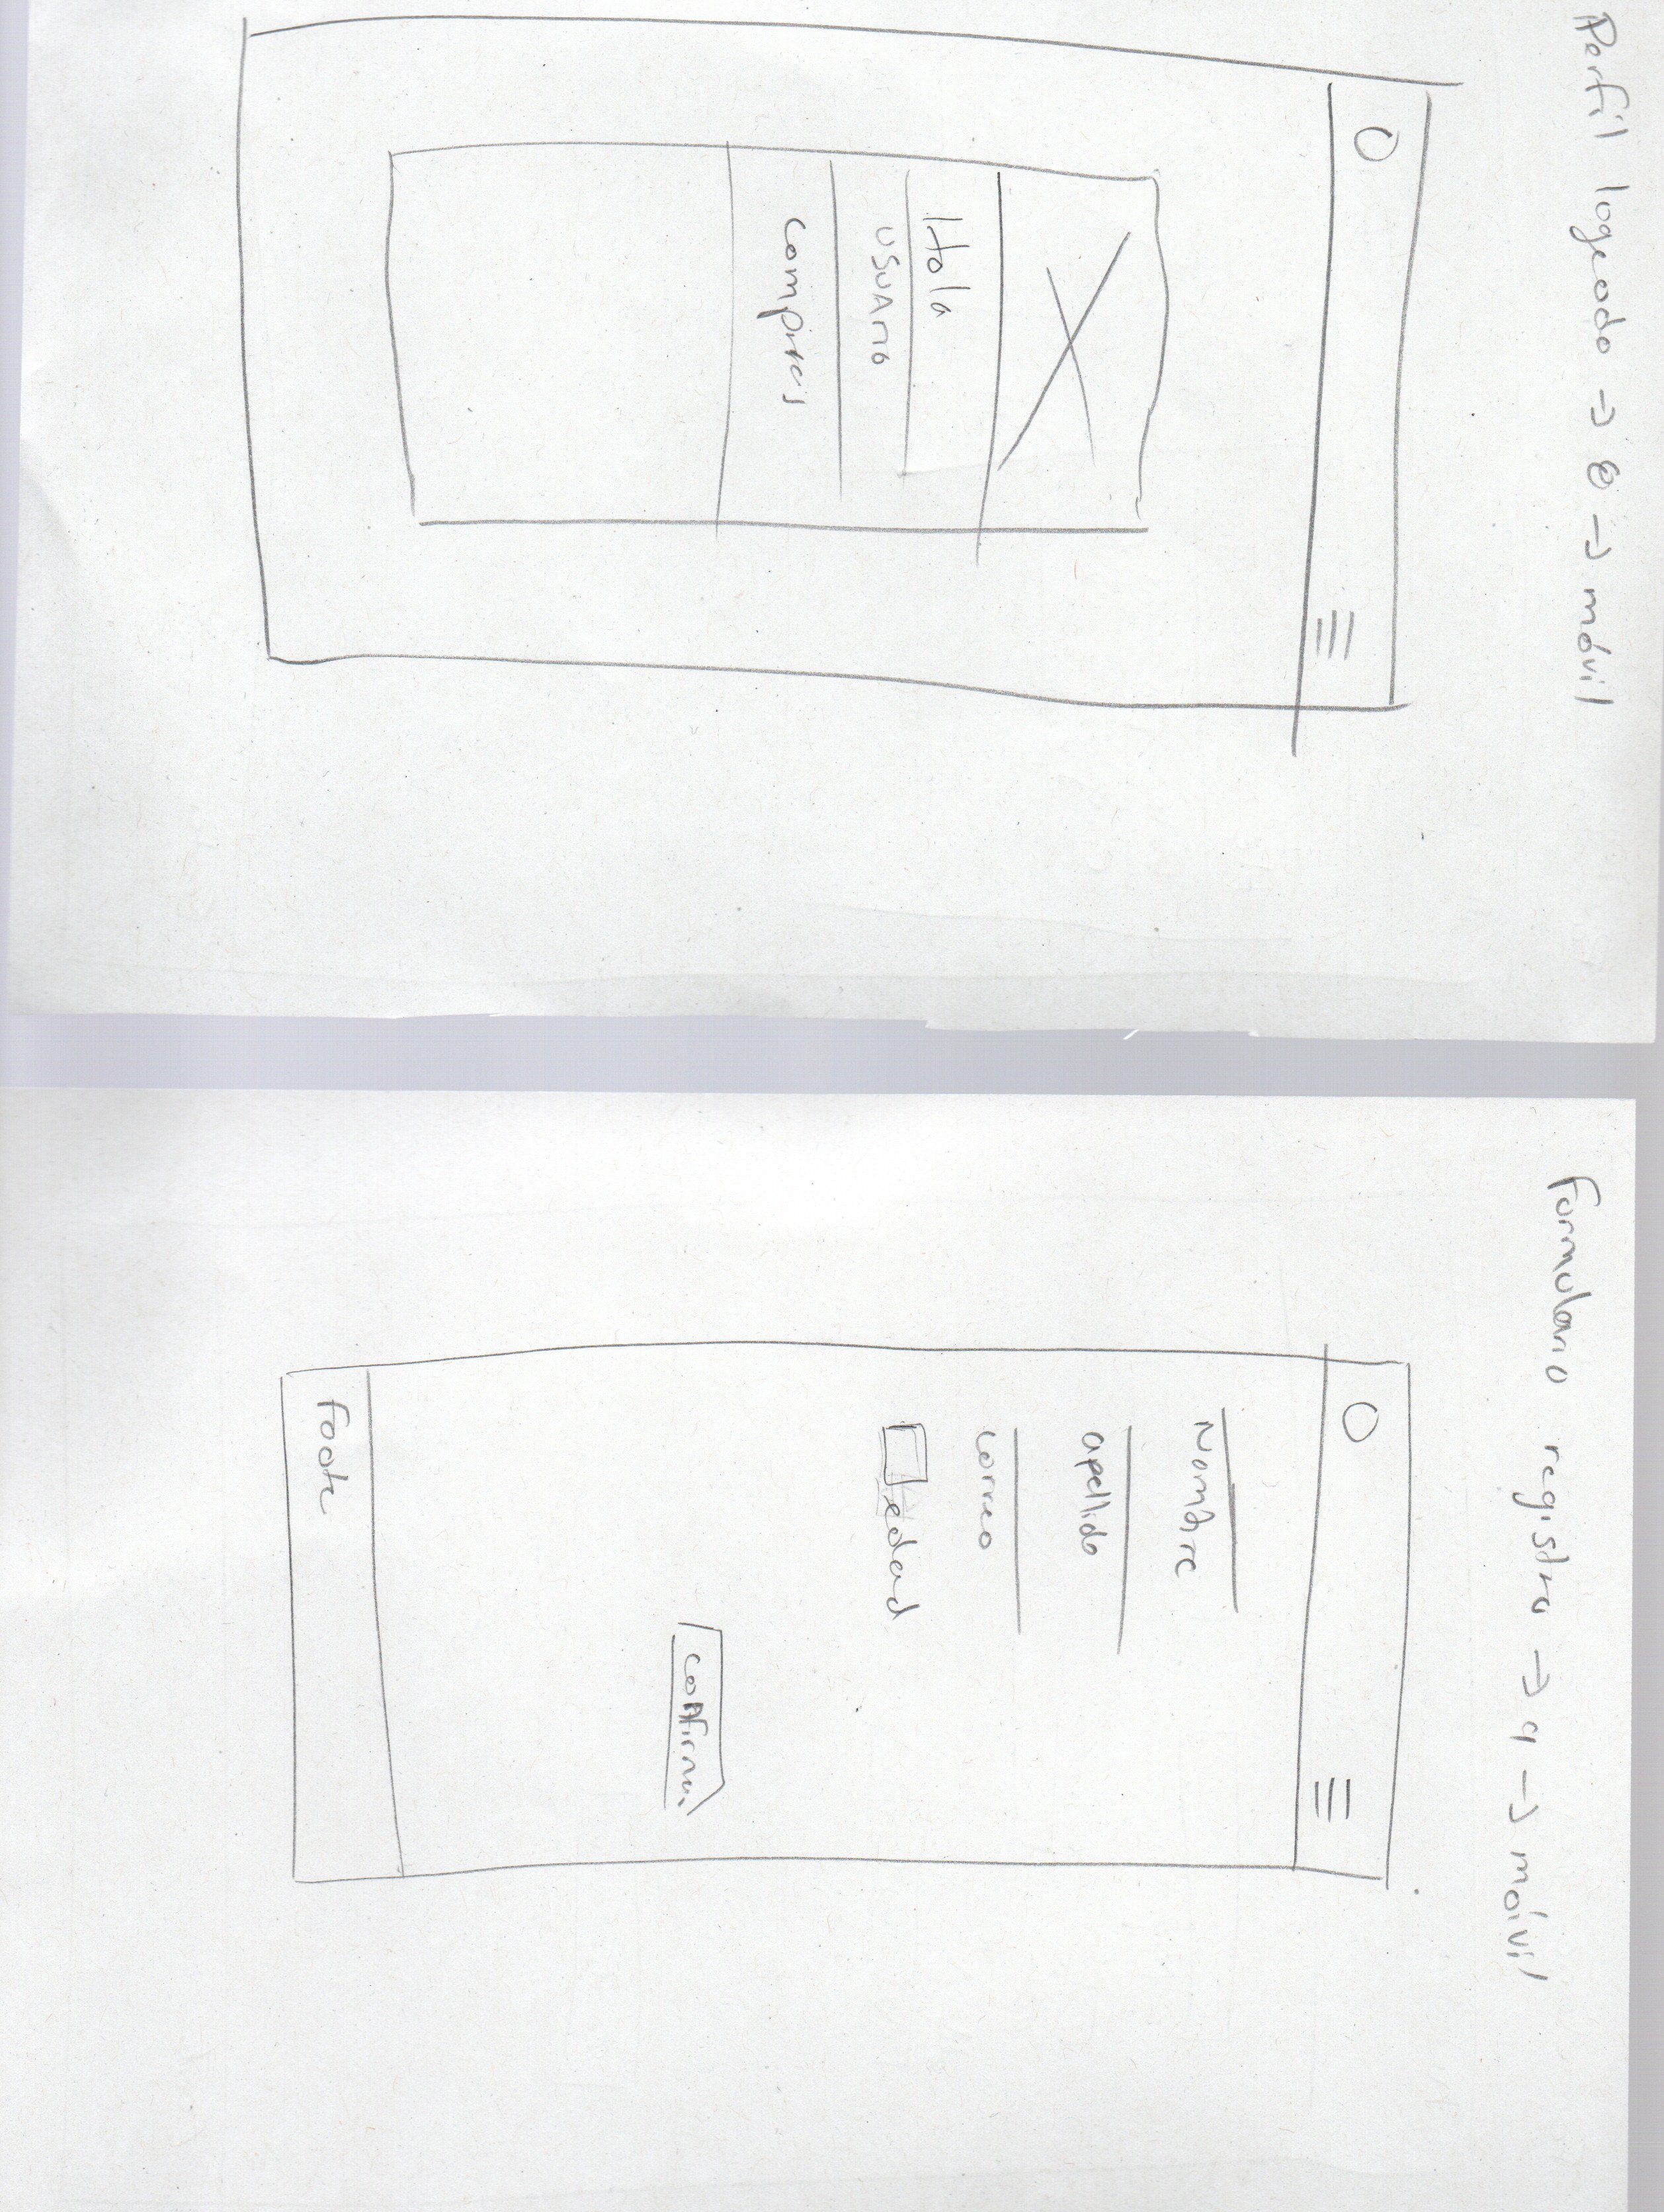 Perfil logeado → 8 → móvil
Hola
USUARIO
compras
Formulario registro → 9 → móvil
Nombre
apellido
correo
edad
confirmar
Foote